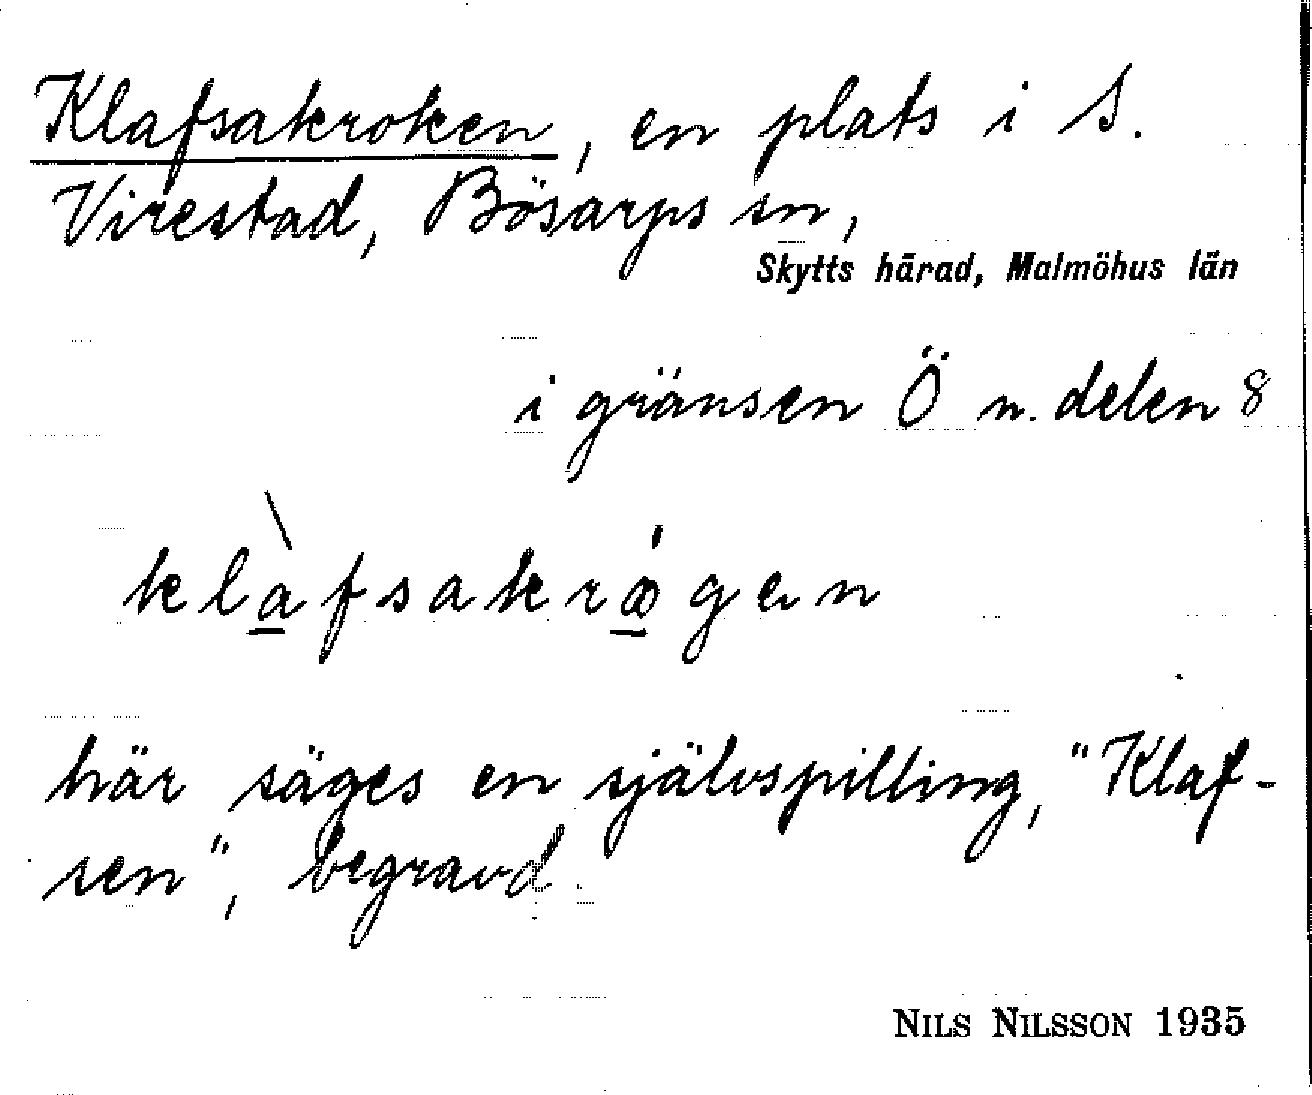 Klafsakroken, en plats i S.
Virestad, Bösarps sn,
Skytts härad, Malmöhus län
i gränsen Ö n. delen 8
klàfsakrǿgen
här säges en självspilling, "Klaf-
sen", begravd.
NILS NILSSON 1935